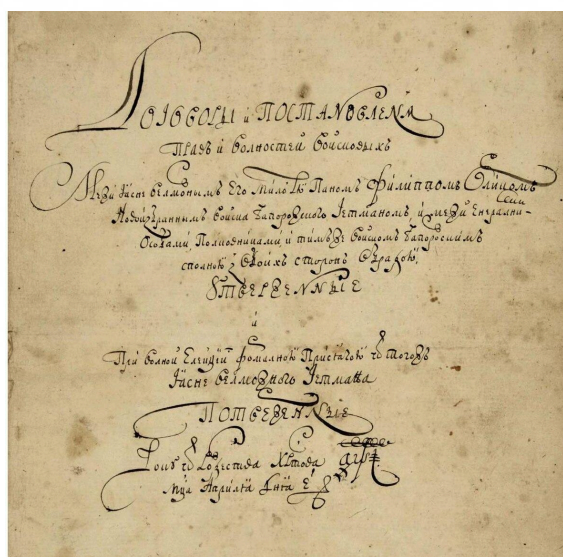 Договоры и постановленѧ
Правъ и волностей войсковыхъ
Межи Ясне велможнымъ Его милостю Паномъ Филиппомъ Орликомъ
Новоизбраннымъ войска Запорожского Гетманомъ, и межи Енералними
Особами, Полковниками, и тимже войскомъ Запорозскимъ
сполною з обоихъ сторонъ обрадою
Утвержденные
и
При волной Елекціи формалною присягою ѿ тогожъ
Ясне велможного Гетмана
Потверженные
Року ѿ Рождества Христова
мца Априля дня Е